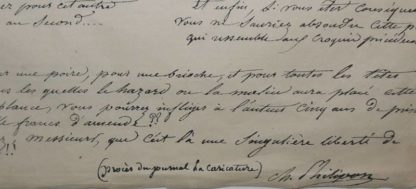 er pour cet autre
au Second....
Et enfin, si vous êtes conséque
Vous ne Sauriez absoudre cette p
qui ressemble aux Croquis précéden
r une poire, pour une brioche, et pour toutes les têtes
les quelles le hazard ou la malice aura placé cette
blance, Vous pourrez infliger à l'auteur Cinq ans de pris
lle francs d'amende ??
Messieurs, que c'est là une Singulière liberté de
??
(procès du journal La Caricature)
Ch. Philipon